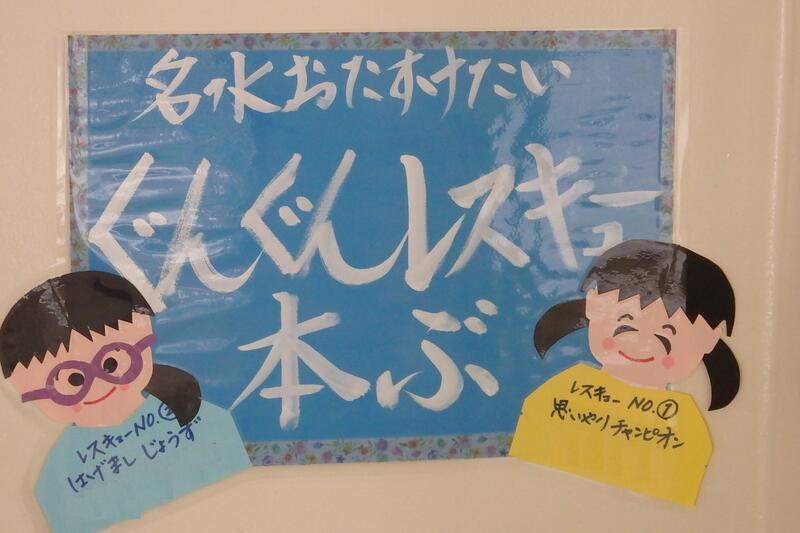 名水おたすけたい
ぐんぐんレスキュー
本ぶ
レスキューNO.②
はげまし じょうず
レスキュー NO.①
思いやりチャンピオン